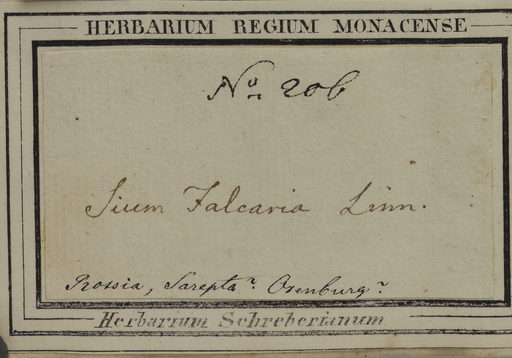 HERBARIUM REGIUM MONACENSE
No. 206
Sium Falcaria Linn.
Rossia, Sarepta? Orenburg?
Herbarium Schreberianum